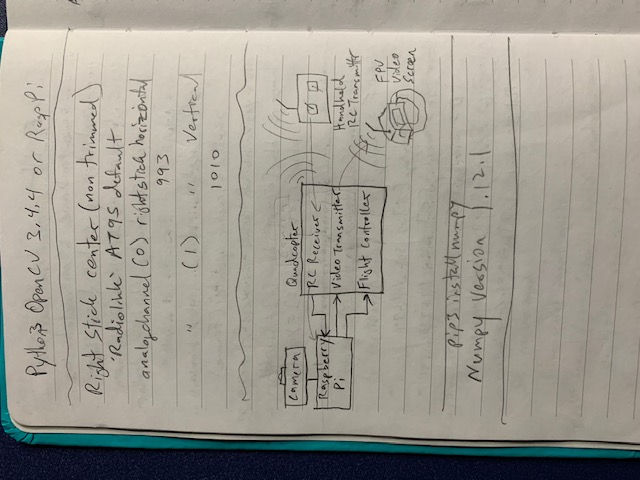 Python3 OpenCV 3.4.4 or RaspPi
Right Stick center (non trimmed)
'Radiolink' AT9S default
analogchannel (0) rightstick horizontal
993
" (1) " Vertical
1010
Camera
Raspberry
Pi
Quadcopter
RC Receiver
Video Transmitter
Flight Controller
Handheld
RC Transmitter
FPV
Video
Screen
pip3 install numpy
Numpy Version 1.12.1